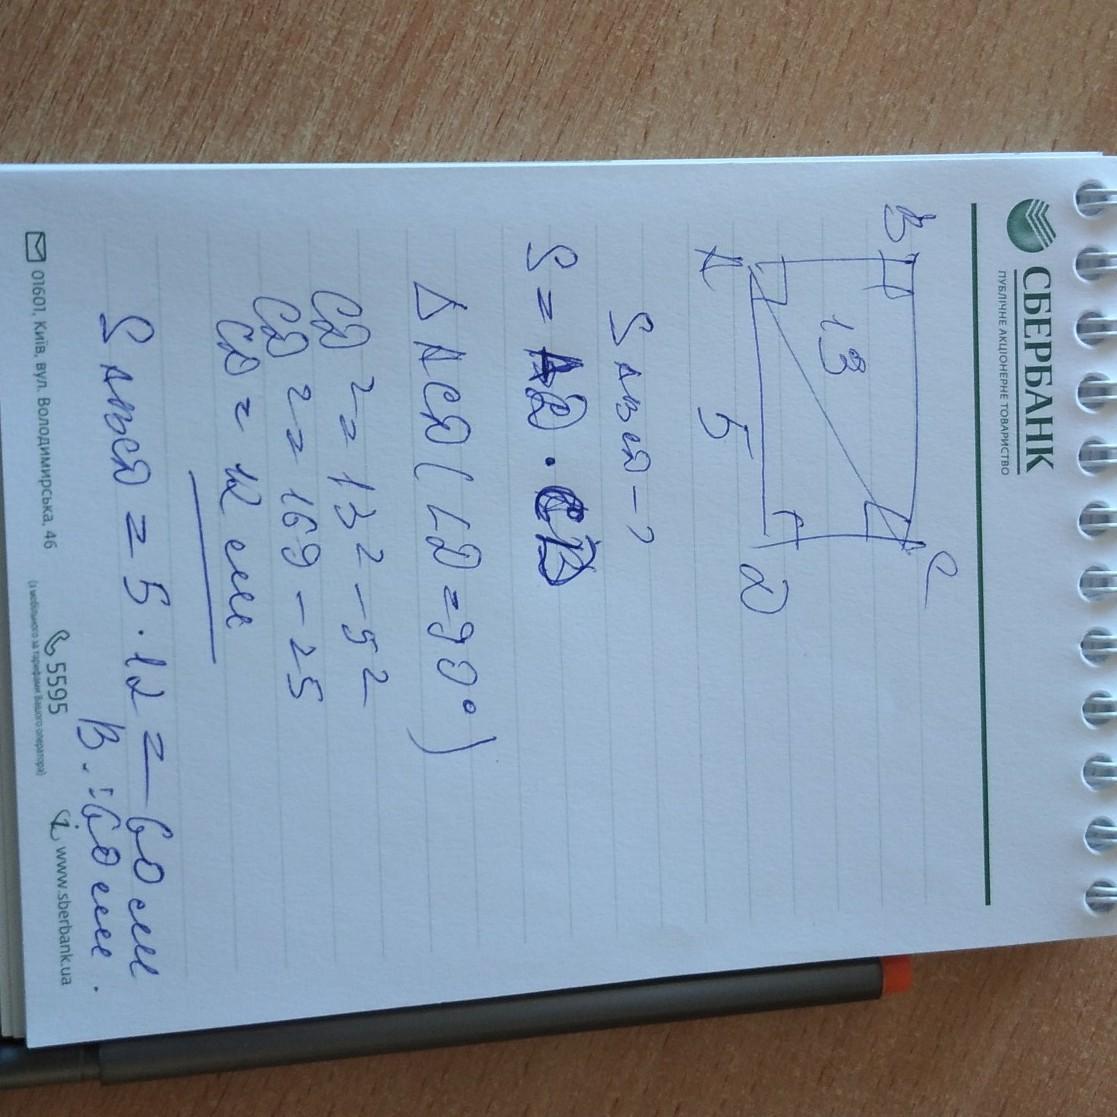 СБЕРБАНК
ПУБЛІЧНЕ АКЦІОНЕРНЕ ТОВАРИСТВО
B C
13
A 5 D
S ABCD - ?
S = AD · CD
Δ ACD (∠D = 90°)
CD² = 13² - 5²
CD² = 169 - 25
CD = 12 см
S ABCD = 5 · 12 = 60 см
В.: 60 см.
01601, Київ, вул. Володимирська, 46
5595
(з мобільного за тарифами Вашого оператора)
www.sberbank.ua